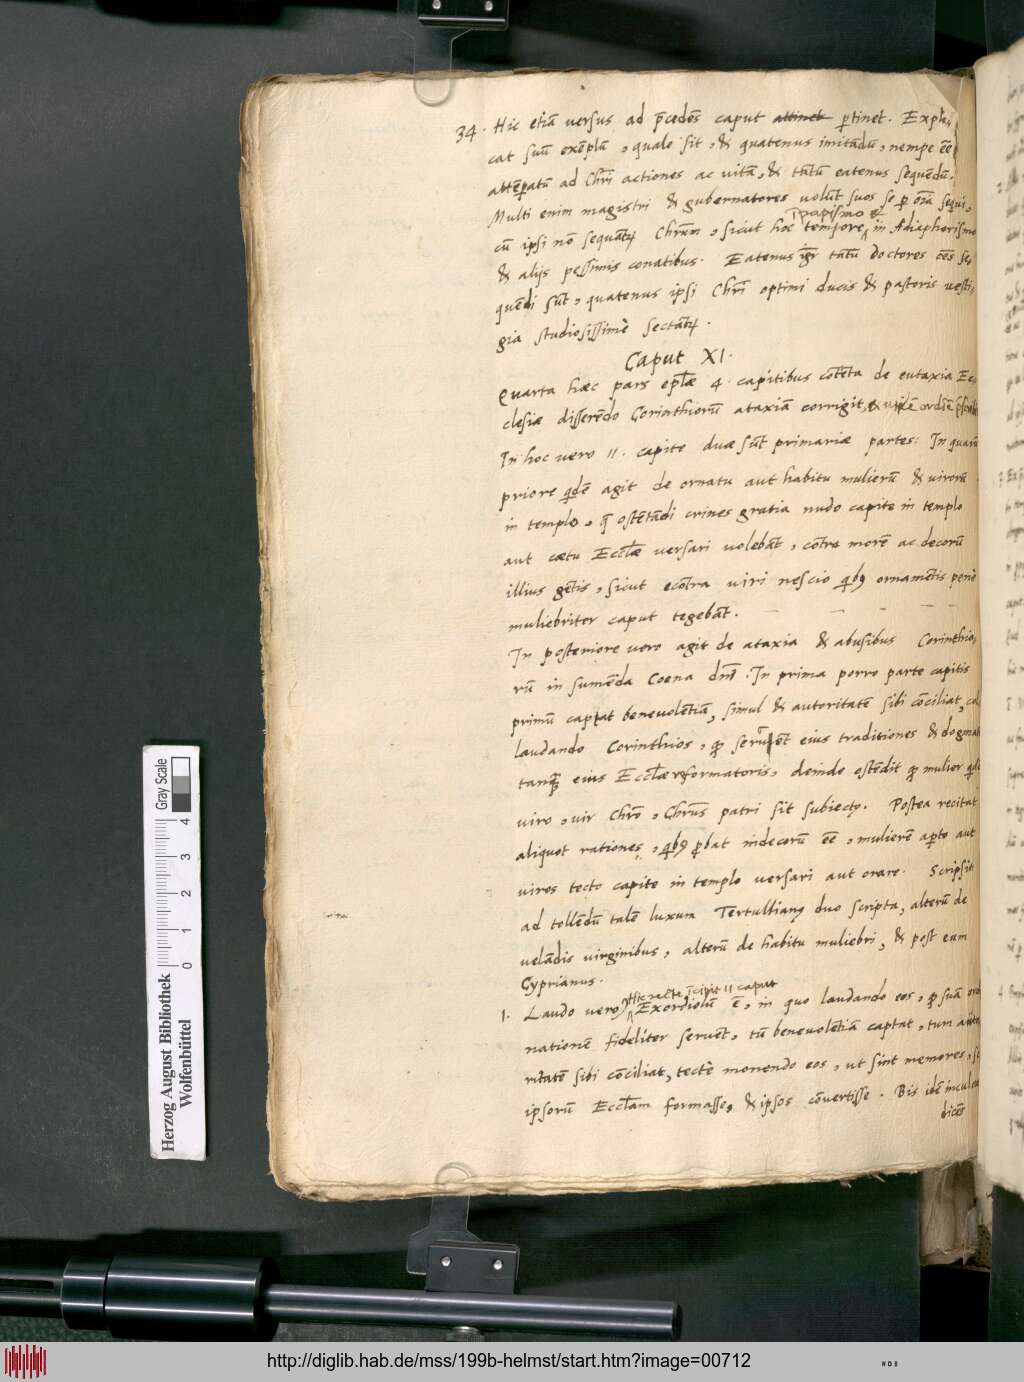 34. Hic etiā versus ad p̄cedēs caput attinet p̄tinet. Expli-
cat suū exēplū, quale sit, & quatenus imitādū, nempe ēē
abtēꝑatū ad Chr̄i actiones ac vitā, & tātū eatenus sequēdū.
Multi enim magistri & gubernatores volūt suos se ꝑ oīa sequi,
ī papismo et
cū ipsi nō sequātꝛ Chr̄um, sicut hoc tempore in Adiaphorismo
& alijs pessimis conatibus. Eatenus igr̄ tātū doctores cēs se-
quēdi sūt, quatenus ipsi Chr̄i optimi ducis & pastoris vesti-
gia studiosissimè sectātꝛ.
Caput XI.
Quarta hæc pars ep̄læ 4. capitibus cōtēta de eutaxia Ec-
clesiæ disserēdo Corinthiorū ataxiā corrigit,
In hoc vero 11. capite duæ sūt primariæ partes: In quarū
priore qdē agit de ornatu aut habitu mulierū & virorū
in templo, q̄ ostētādi crines gratia nudo capite in templo
aut cœtu Eccl̄æ versari volebāt, cōtra morē ac decorū
illius gētis, sicut ecōtra viri nescio qbꝯ ornamētis penè
muliebriter caput tegebāt.
In posteriore vero agit de ataxia & abusibus Corinthio-
rū in sumēda Coena dn̄i. In prima porro parte capitis
primū captat benevolētiā, simul & autoritatē sibi cōciliat,
laudando Corinthios, qꝫ seruēt eius traditiones & dogmata
tanꝗ̄ eius Eccl̄æ reformatoris, deinde ostēdit qꝫ mulier
viro, vir Chr̄o, Chr̄us patri sit subiectꝯ. Postea recitat
aliquot rationes, qbꝯ ꝓbat indecorū ēē, mulierē aꝑto aut
viros tecto capite in templo versari aut orare. Scripsit
ad tollēdū talē luxum Tertullianꝯ duo scripta, alterū de
velādis virginibus, alterū de habitu muliebri, & post eum
Cyprianus.
Hic rectè īcipit 11 caput
1. Laudo vero) Exordiolū ē, in quo laudando eos, qꝫ suā ordi
nationē fideliter seruēt, tū benevolētiā captat, tum auto
ritatē sibi cōciliat, tectè monendo eos, ut sint memores, se
ipsorū Eccl̄am formasse, & ipsos cōvertisse. Bis idē inculcat
dicēs
Herzog August Bibliothek
Wolfenbüttel
0 1 2 3 4
Gray Scale
http://diglib.hab.de/mss/199b-helmst/start.htm?image=00712